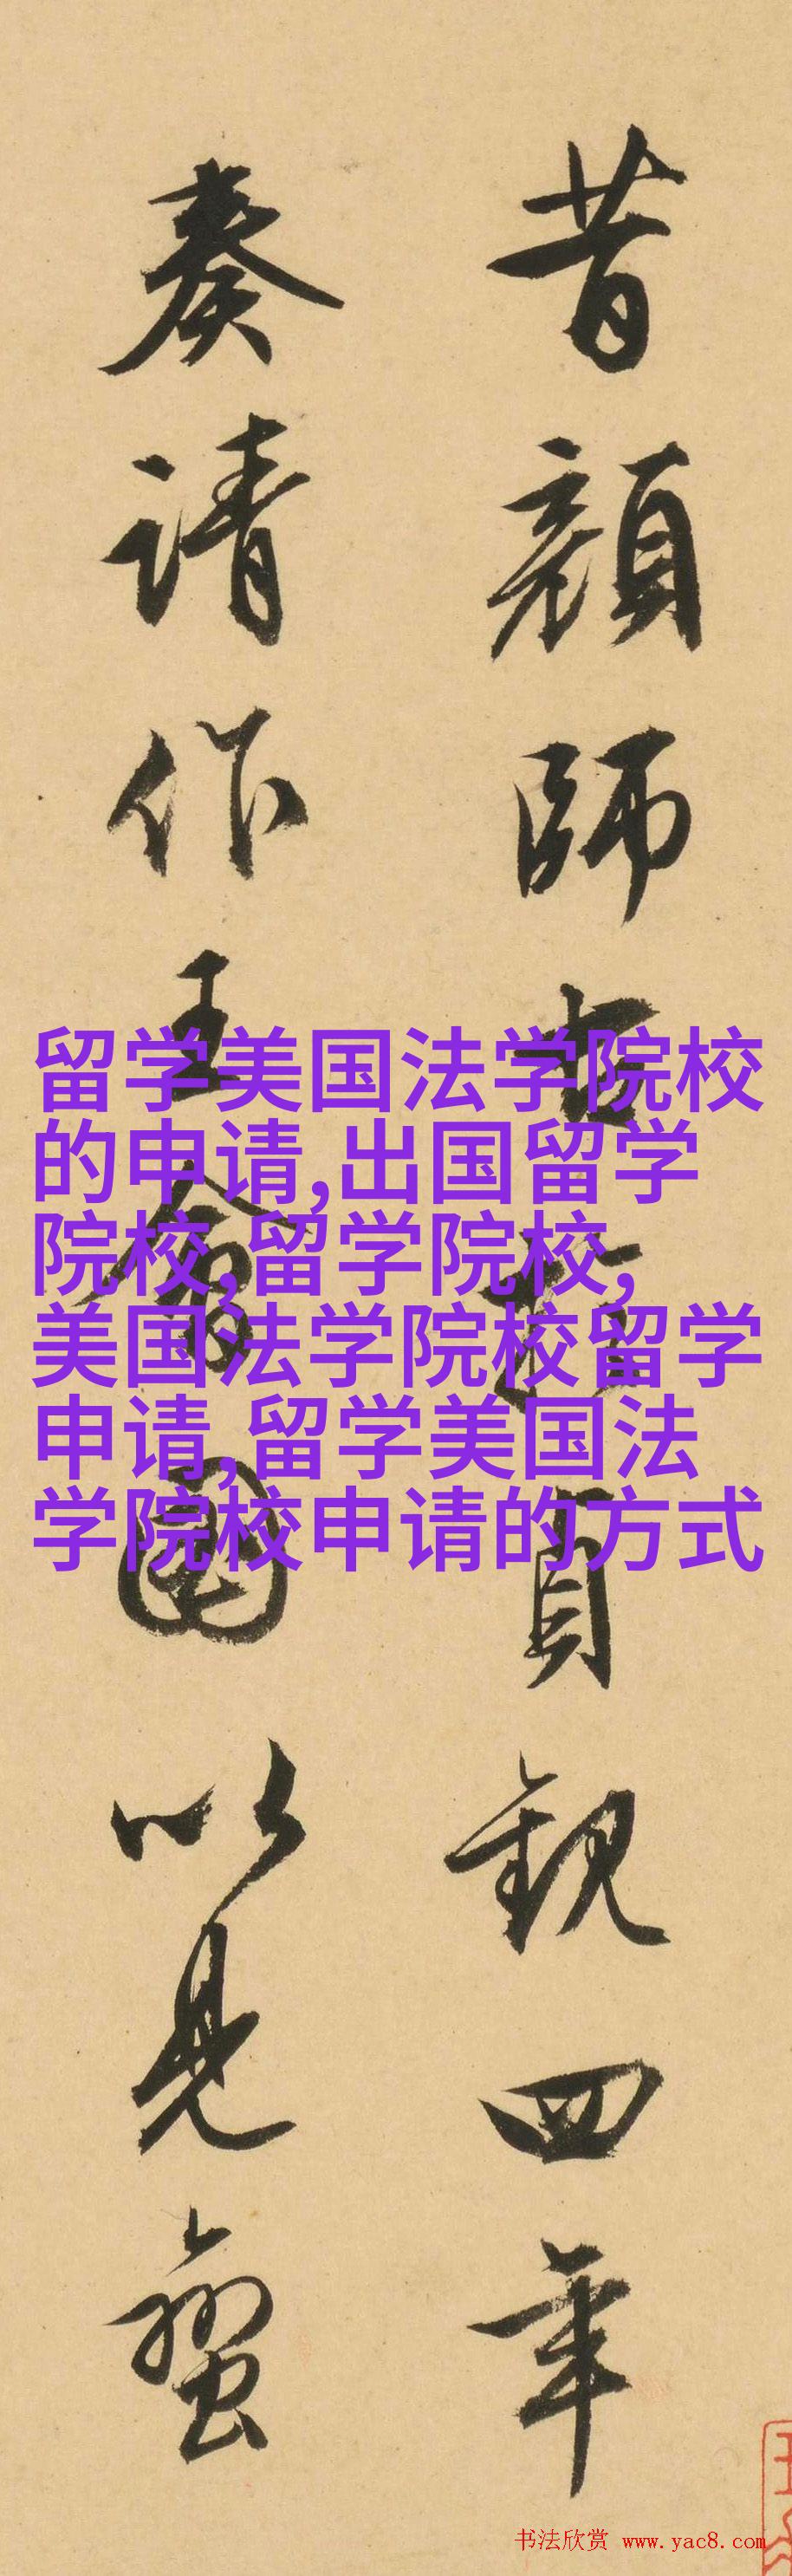 昔顏師古於貞觀四年
奏請作王會圖以見蠻
留学美国法学院校
的申请,出国留学
院校,留学院校,
美国法学院校留学
申请,留学美国法
学院校申请的方式
书法欣赏 www.yac8.com